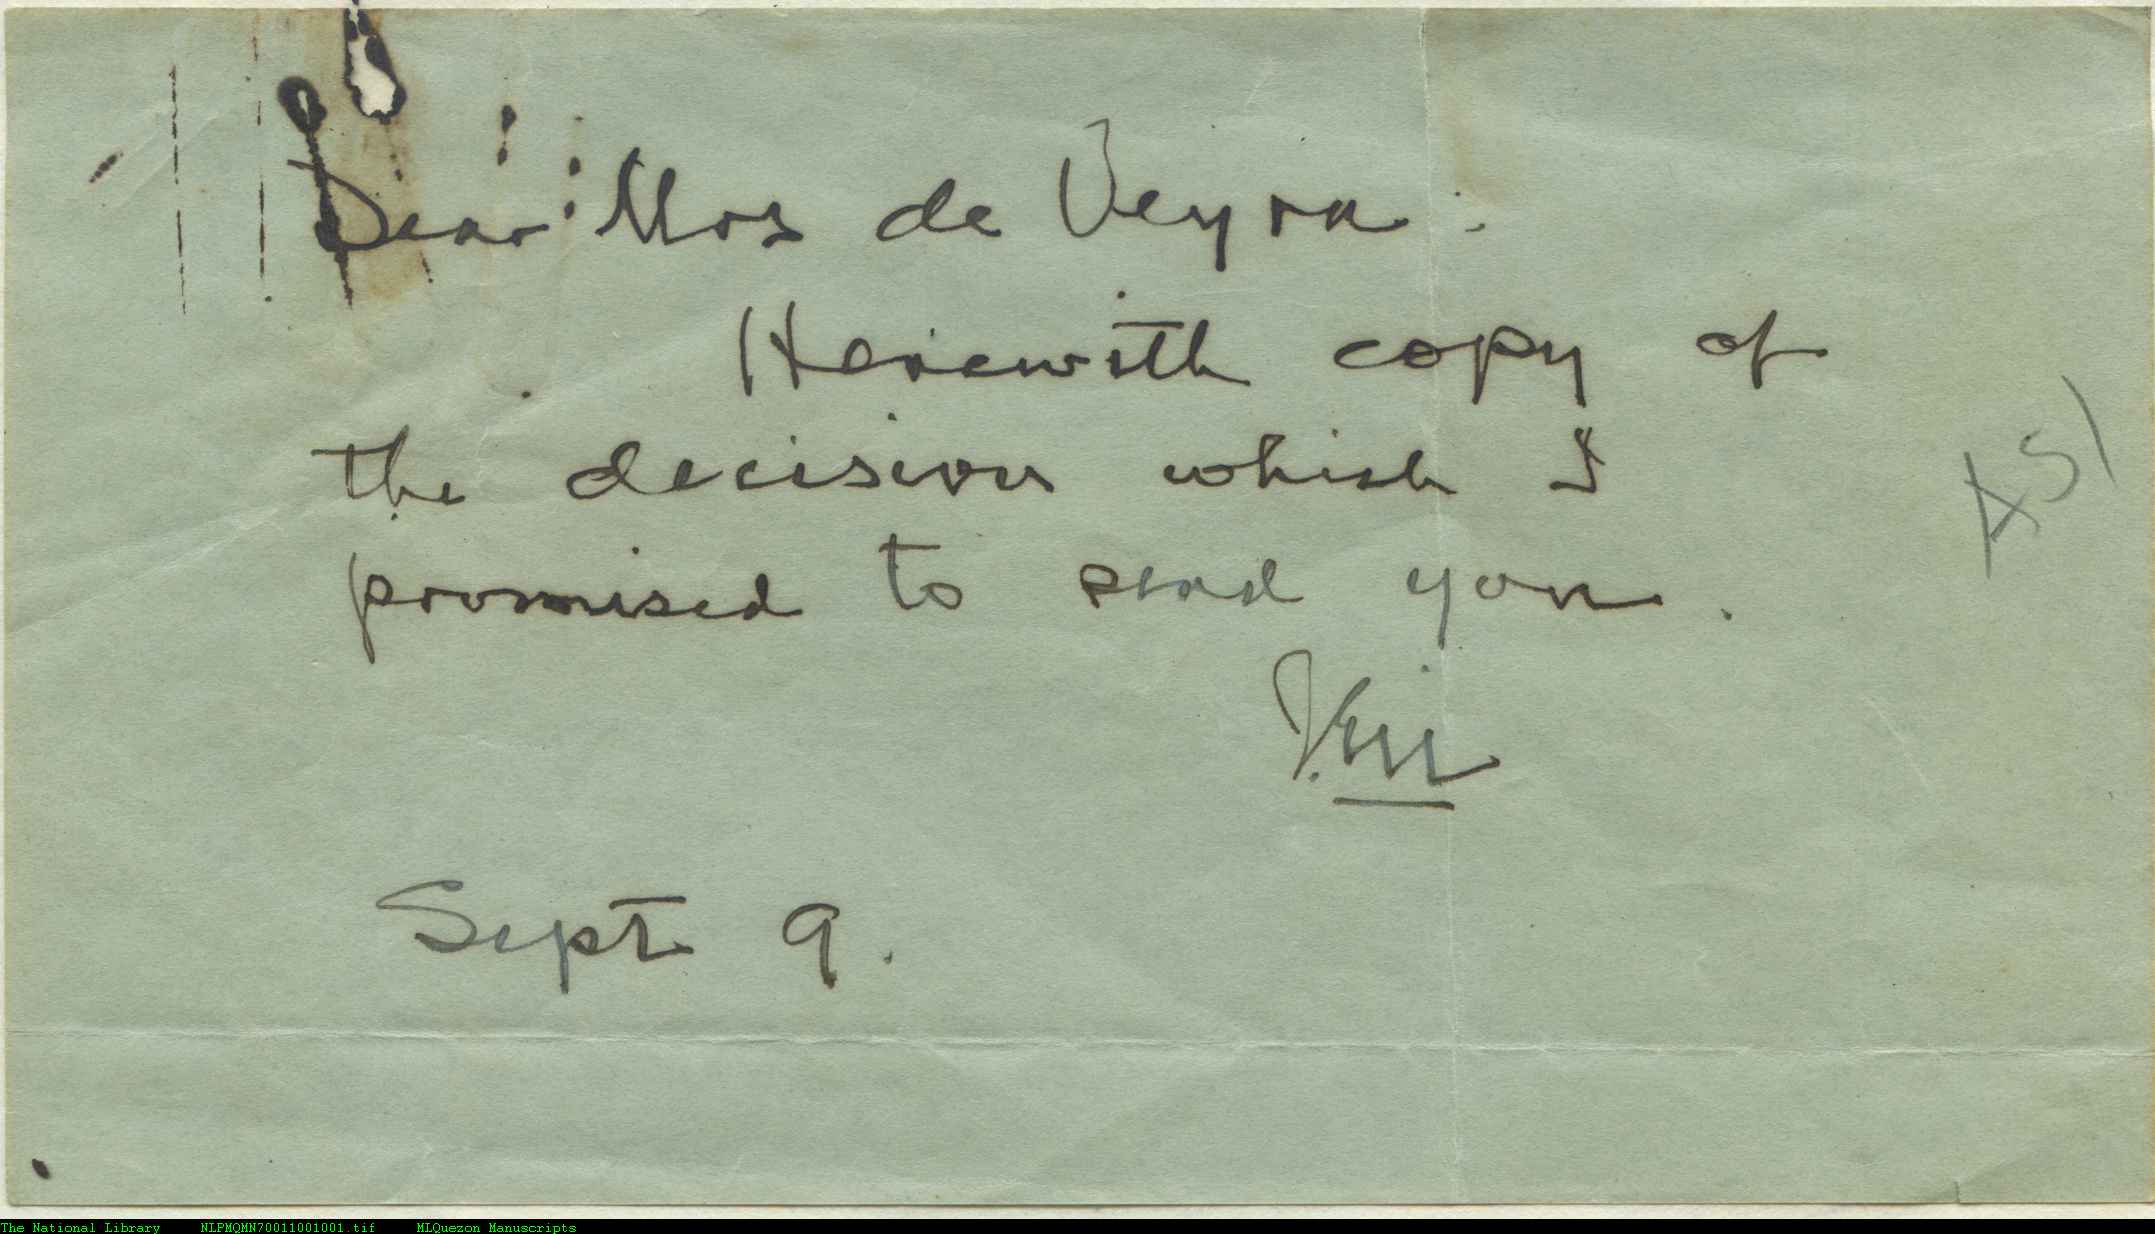 Dear Mrs de Veyra :
Herewith copy of
the decision which I
promised to send you .
Sept 9 .
The National Library NLPMQMN70011001001.tif MLQuezon Manuscripts